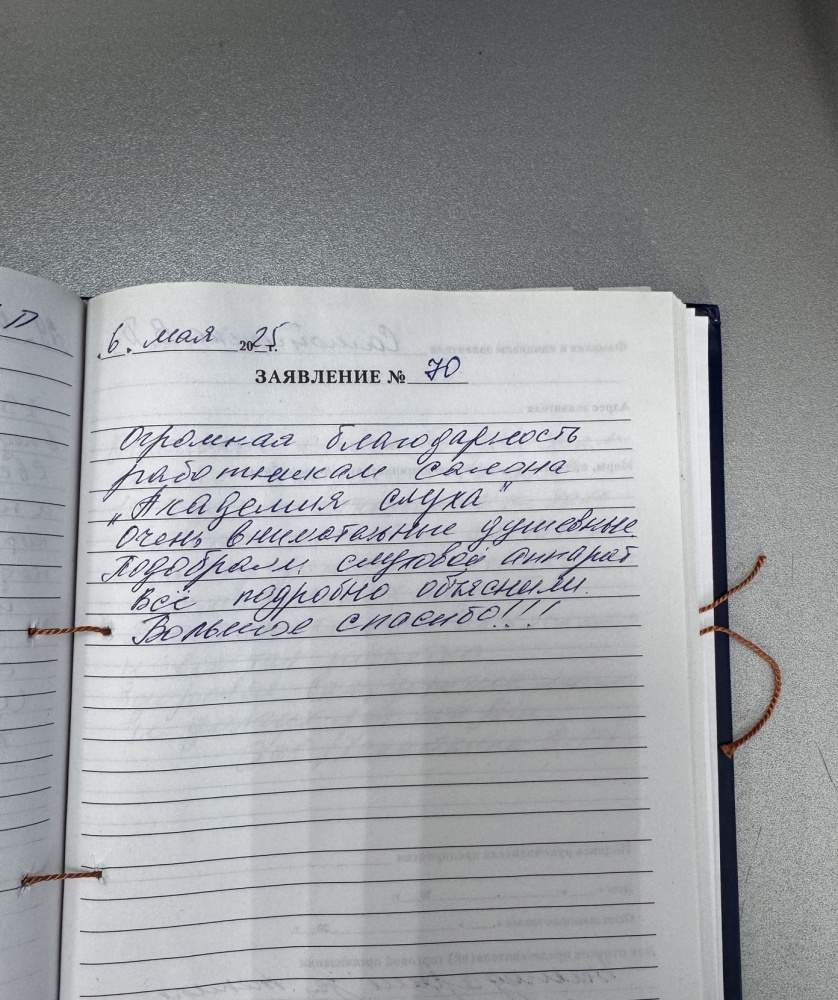 6. мая 2025 г.
ЗАЯВЛЕНИЕ № 70
Огромная благодарность
работникам салона
"Академия слуха"
Очень внимательные душевные.
Подобрали слуховой аппарат
Всё подробно объяснили.
Большое спасибо!!!